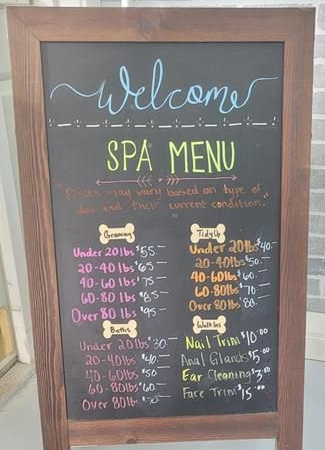 Welcome
SPA MENU
"Prices may vary based on type of
dog and their current condition."
Grooming
Under 20lbs $55-
20-40lbs $65-
40-60lbs $75-
60-80 lbs $85-
Over 80 lbs $95-
Tidy Up
Under 20lbs $40-
20-40lbs $50-
40-60lbs $60-
60-80lbs $70-
Over 80lbs $80-
Baths
Under 20lbs $30-
20-40lbs $40-
40-60lbs $50-
60-80lbs $60-
Over 80lbs
Walk Ins
Nail Trim $10.00
Anal Glands $5.00
Ear Cleaning $3.50
Face Trim $15.00